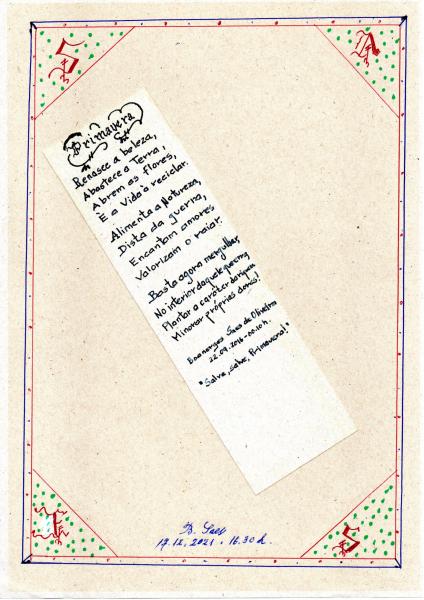 S
A
Primavera
Renasce a beleza,
Abastece a Terra,
Abrem as flores,
E a Vida a reciclar.
Alimenta a Natureza,
Dista da guerra,
Encantam amores
Valorizam o raiar.
Basta agora mergulhar,
No interior daquele que erra,
Plantar o caráter da
Minorar próprias dores!
Boanerges Saes de Oliveira
22.09.2016 - 00.10 h.
"Salve, salve, Primavera!"
B. Saes
17.12.2021 - 16.30 h.
S